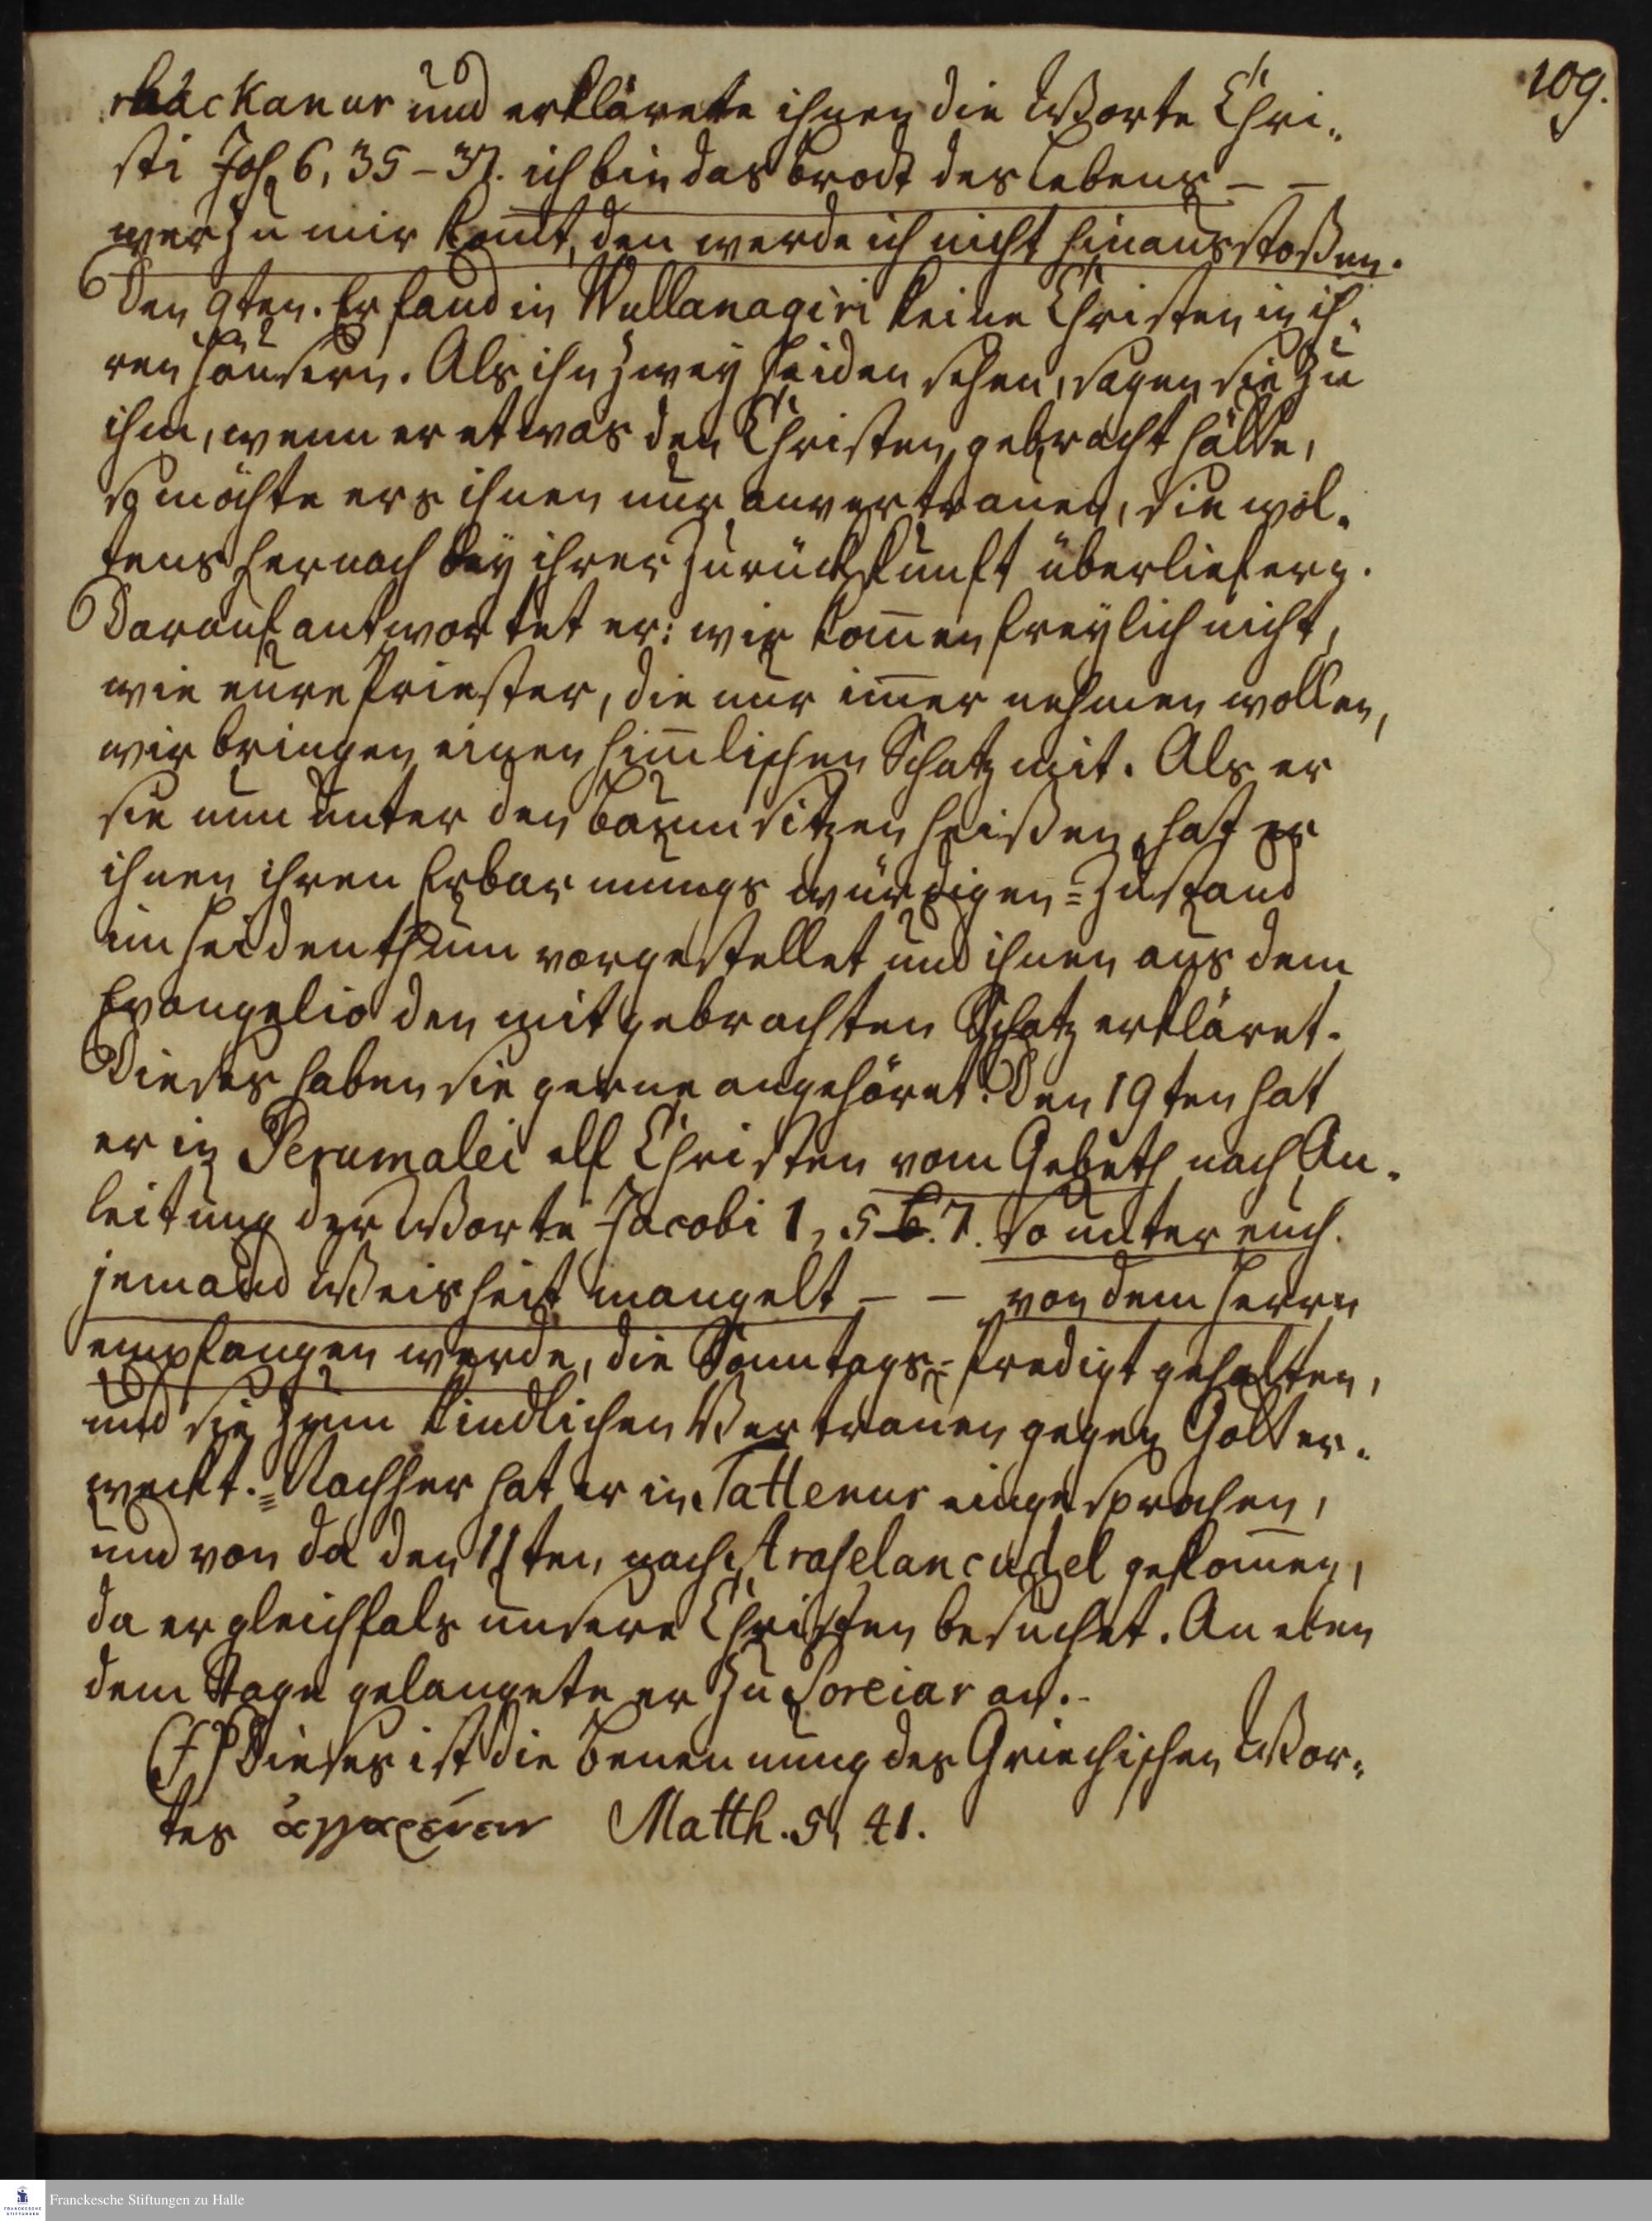 109.
backanur und erklärete ihnen die Worte Chri-
sti Joh. 6, 35-37. ich bin das brodt des lebens - -
wer zu mir komt, den werde ich nicht hinausstoßen.
Den 9ten. Er fand in Wullanagiri keine Christen in ih-
ren Häusern. Als ihn zwey Heiden sehen, sagen sie zu
ihm, wenn er etwas den Christen gebracht hätte,
so möchte ers ihnen nur anvertrauen, sie wol-
tens hernach bey ihrer zurückkunft überliefern.
Darauf antwortet er: wir kom̄en freylich nicht,
wie eure Priester, die nur im̄er nehmen wollen,
wir bringen einen him̄lischen Schatz mit. Als er
sie nun unter den baum sitzen heißen, hat er
ihnen ihren Erbarmungs würdigen=Zustand
im Heidenthum vorgestellet und ihnen aus dem
Evangelio den mitgebrachten Schatz erkläret.
Dieses haben sie gerne angehöret. Den 19ten hat
er in Perumalei elf Christen vom Gebeth nach An-
leitung der Worte Jacobi 1, 5-6.7. So unter euch
jemand Weisheit mangelt - - von dem Herrn
empfangen werde, die Sonntags-Predigt gehalten,
und sie zum kindlichen Vertrauen gegen Gott er-
weckt. = Nachher hat er in Tattenur eingesprochen,
und von da den 11ten, nach Araselancudel gekom̄en,
da er gleichfals unsere Christen besuchet. An eben
dem Tage gelangete er zu Poreiar an.-
(†) Dieses ist die benennung des Griechischen Wor-
tes ἀγγαρεύειν Matth. 5, 41.
Franckesche Stiftungen zu Halle